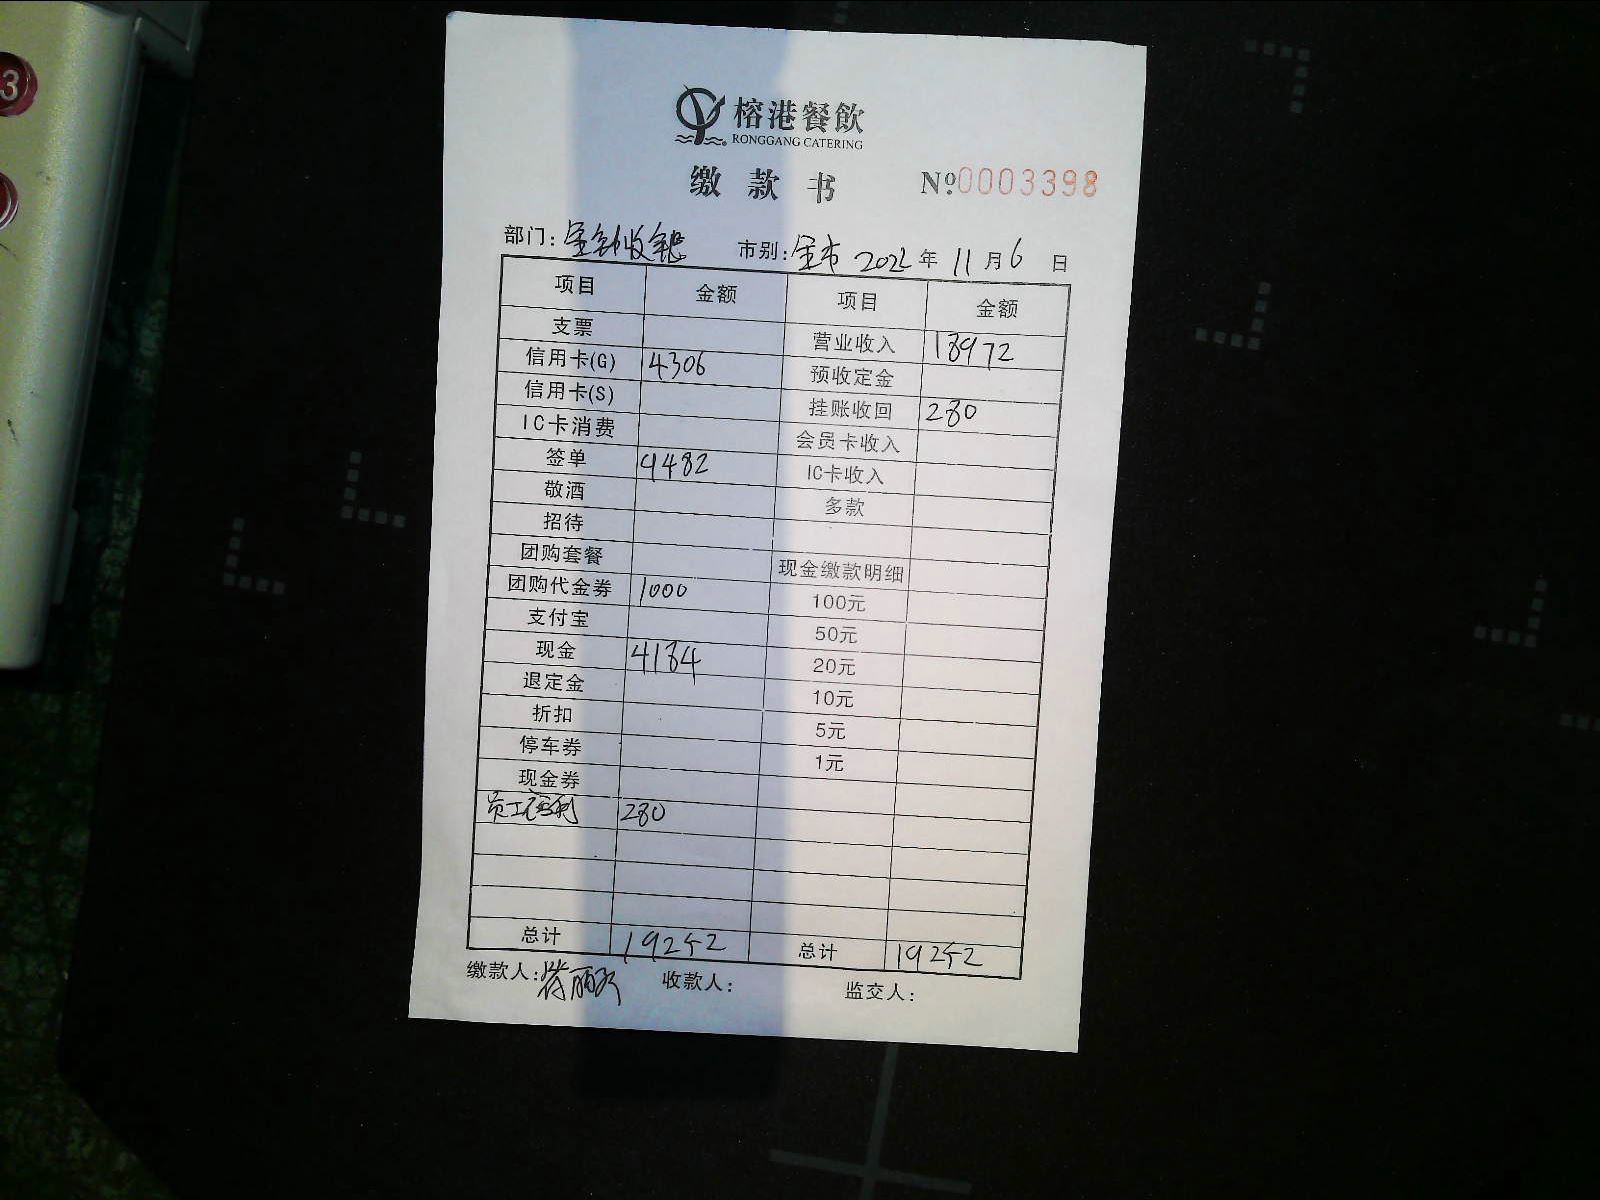 3
榕港餐飲
RONGGANG CATERING
缴款书 №0003398
部门: 收银 市别: 全市 2022 年 11 月 6 日
项目 金额 项目 金额
支票 营业收入 18972
信用卡(G) 4306 预收定金
信用卡(S) 挂账收回 280
IC卡消费 会员卡收入
签单 9482 IC卡收入
敬酒 多款
招待
团购套餐 现金缴款明细
团购代金券 1000 100元
支付宝 50元
现金 4184 20元
退定金 10元
折扣 5元
停车券 1元
现金券
员工福利 280
总计 19252 总计 19252
缴款人: 丽 收款人: 监交人: